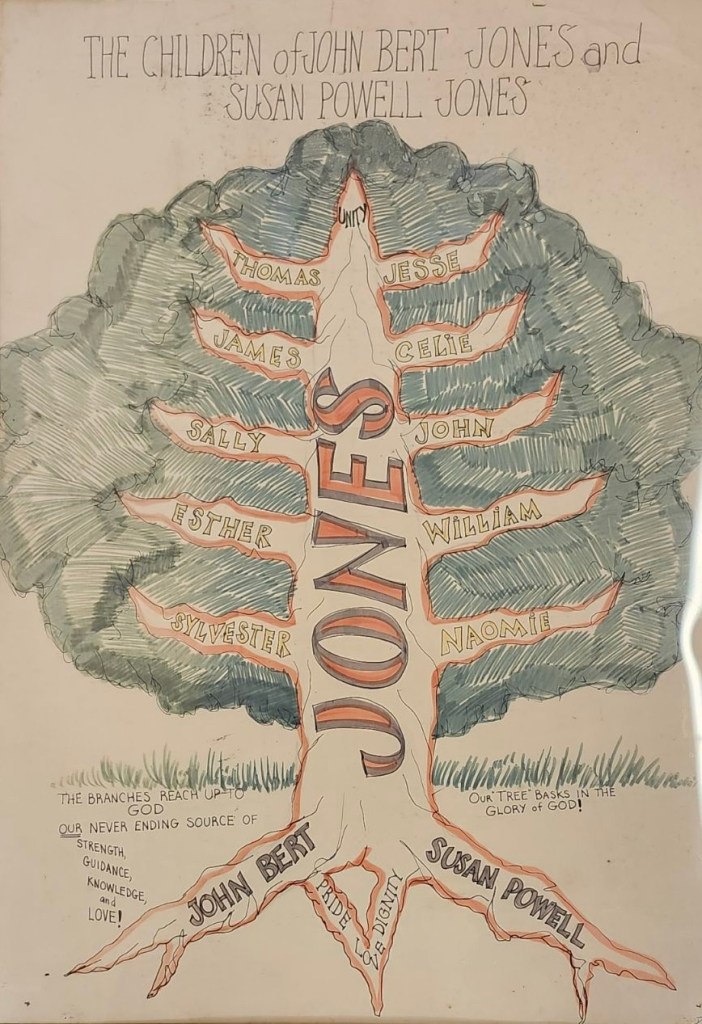 THE CHILDREN of JOHN BERT JONES and
SUSAN POWELL JONES
UNITY
THOMAS
JESSE
JAMES
CELIE
SALLY
JOHN
ESTHER
WILLIAM
SYLVESTER
NAOMIE
JONES
THE BRANCHES REACH UP TO
GOD
OUR NEVER ENDING SOURCE OF
STRENGTH,
GUIDANCE,
KNOWLEDGE,
and
LOVE!
OUR "TREE" BASKS IN THE
GLORY of GOD!
JOHN BERT
SUSAN POWELL
PRIDE
LOVE
DIGNITY